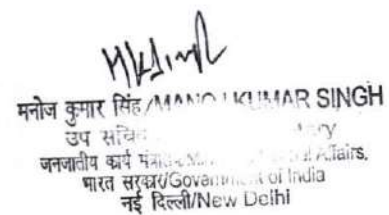 मनोज कुमार सिंह/MANOJ KUMAR SINGH
उप सचिव
जनजातीय कार्य Affairs,
भारत सरकार/Government of India
नई दिल्ली/New Delhi